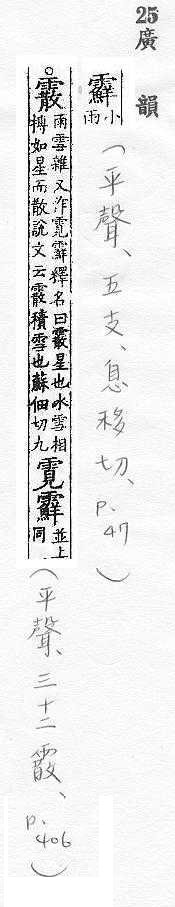 25廣韻
䨘小雨(平聲、五支、息移切、p.47)
。霰雨雪雜又作霓䨘釋名曰霰星也水雪相
摶如星而散說文云霰積雪也蘇佃切九霓䨘並上同
(平聲、三十二霰、p.406)